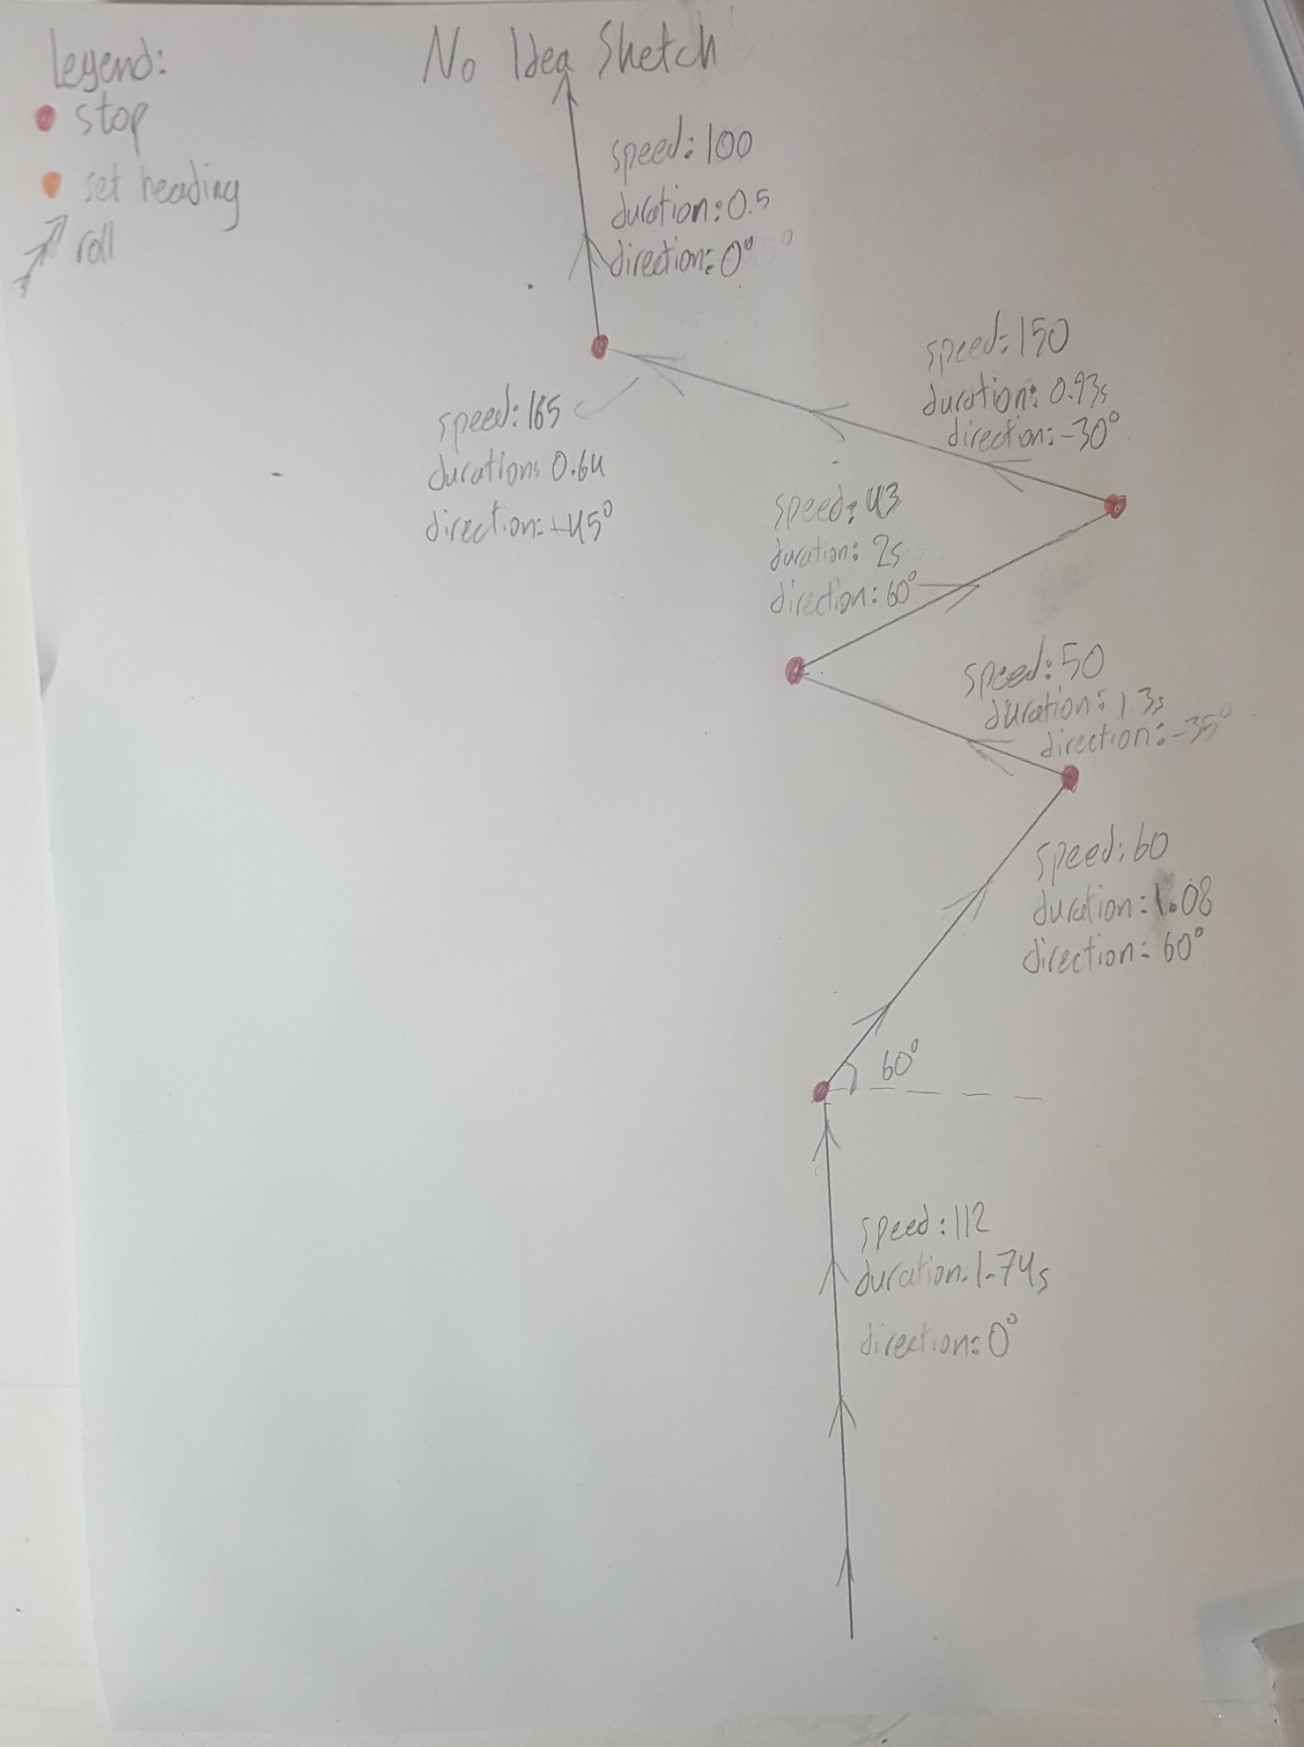 Legend:
stop
set heading
roll
No Idea Sketch
speed: 100
duration: 0.5
direction: 0°
speed: 150
duration: 0.93s
direction: -30°
speed: 165
duration: 0.64
direction: +45°
speed: 43
duration: 2s
direction: 60°
speed: 50
duration: 1.3s
direction: -35°
speed: 60
duration: 1.08
direction: 60°
60°
speed: 112
duration: 1.74s
direction: 0°